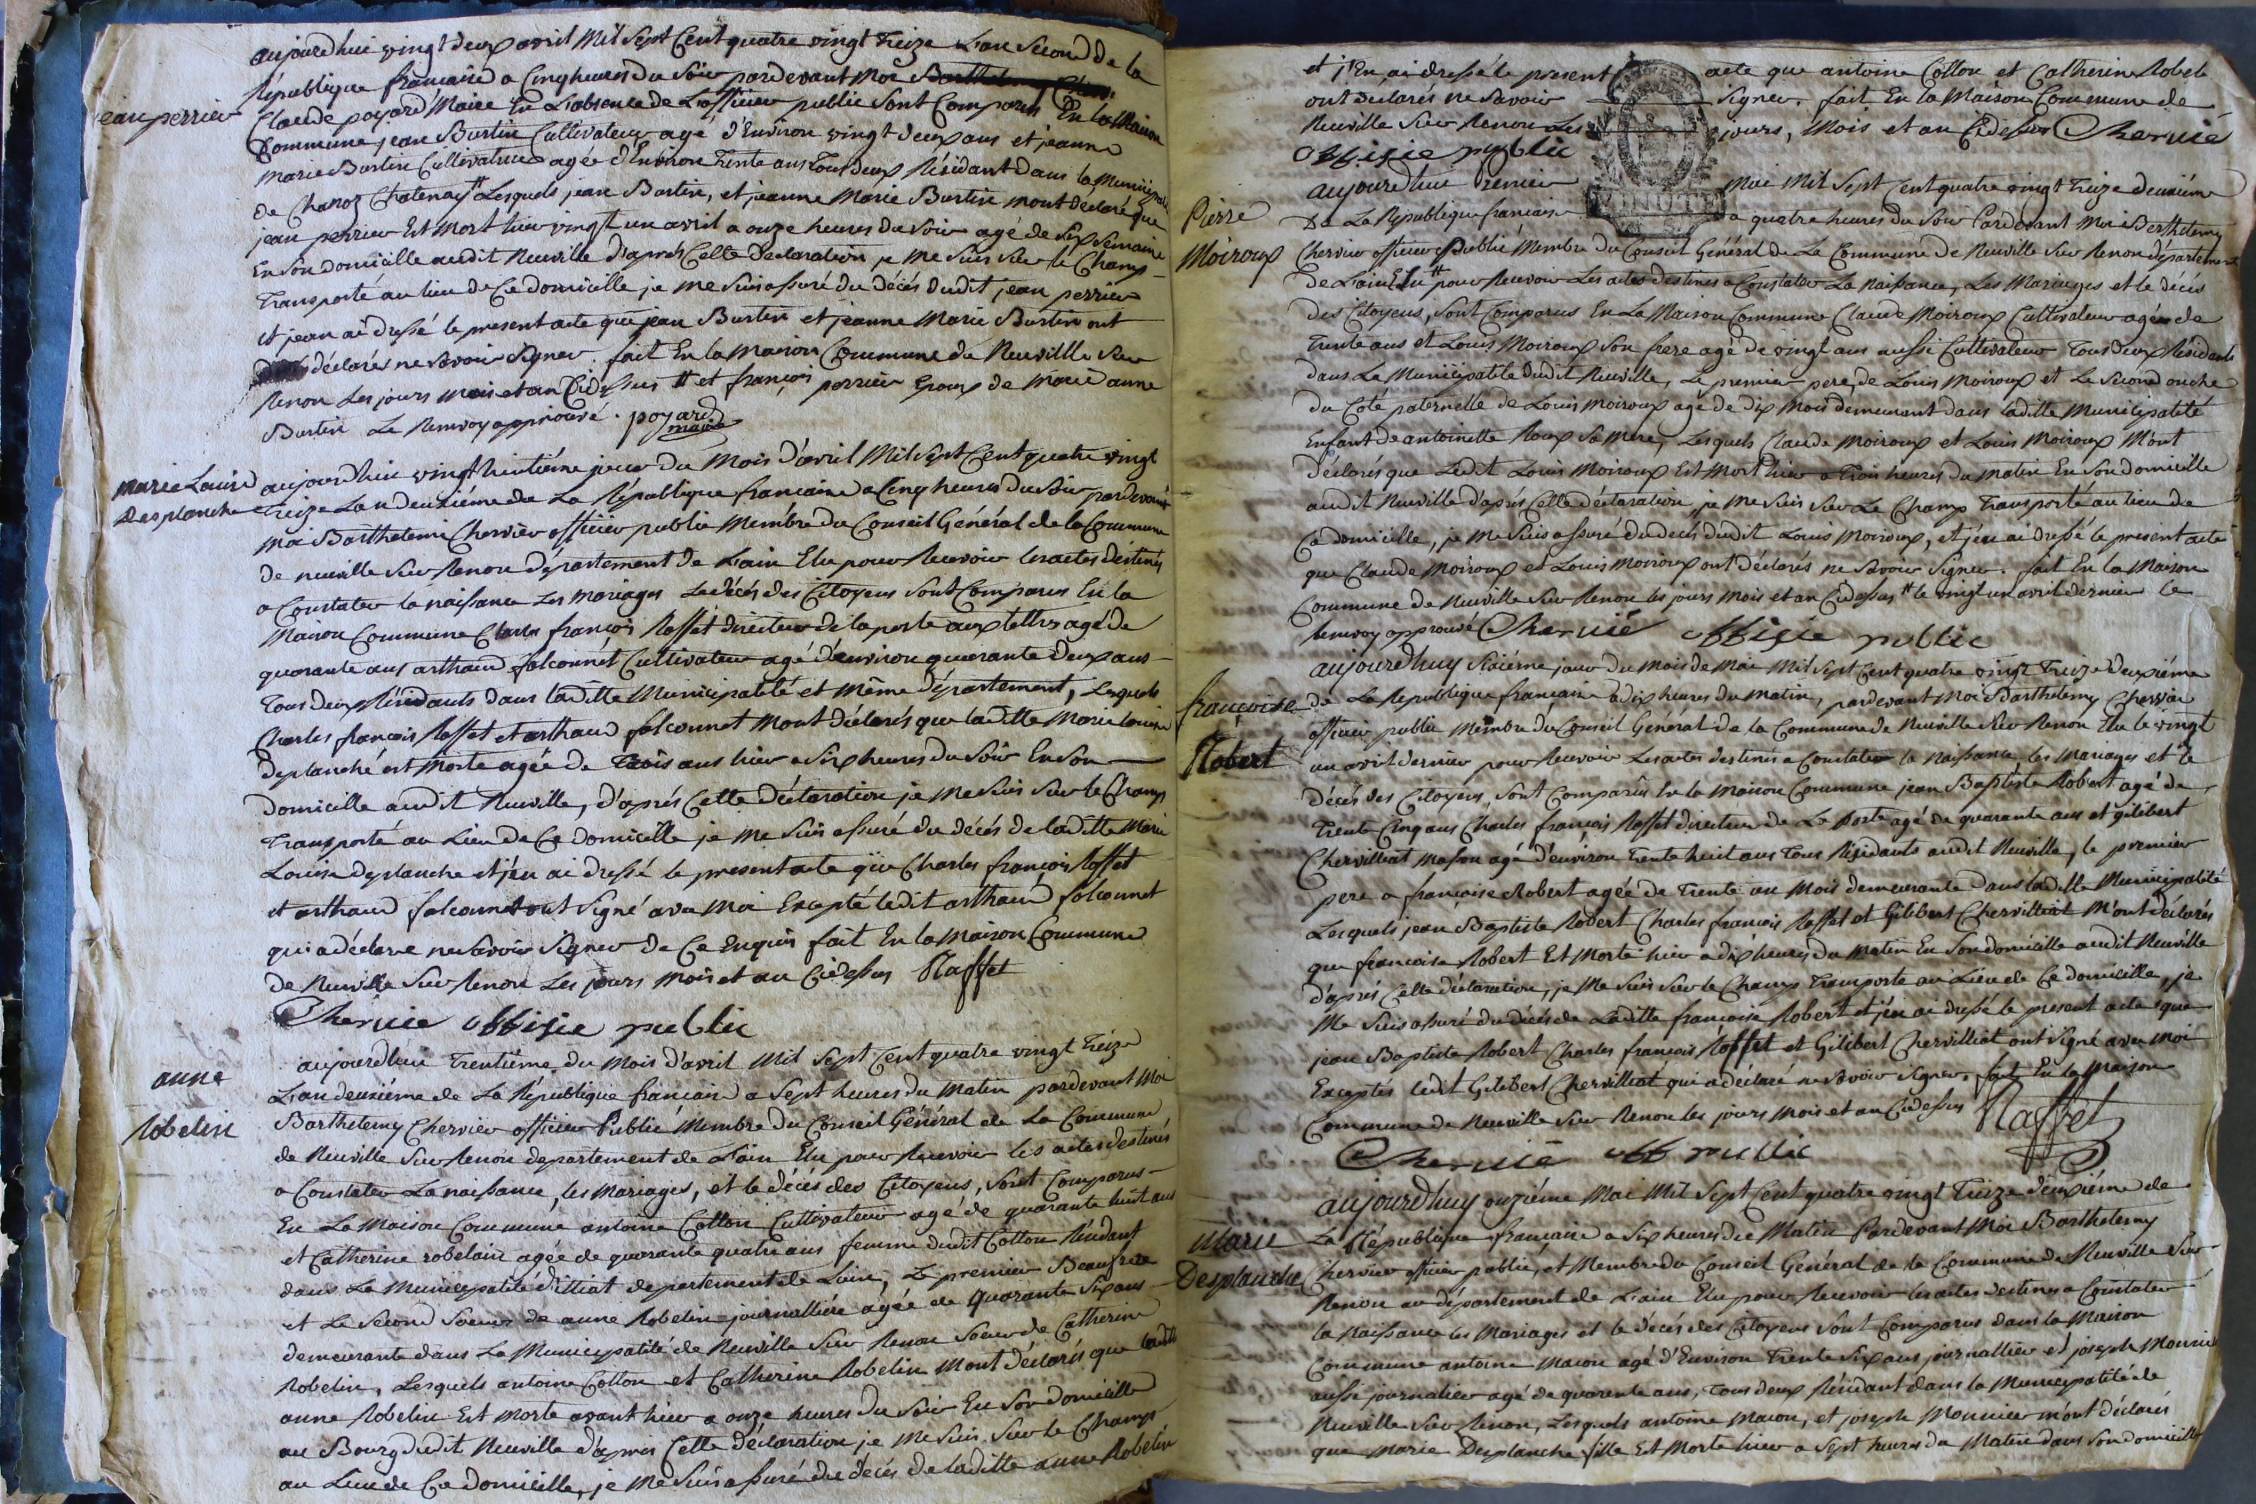 aujourdhui vingt deux avril Mil Sept Cent quatre vingt Treize L'an Second de la
République française a Cinq heures du Soir pardevant Moi
jean perrier
Claude poyard Maire En L'absence de L'officier public Sont Comparus En la Maison
Commune jean Burtin Cultivateur agé d'Environ vingt deux ans et jeanne
Marie Burtin Cultivatrice agée d'Environ Trente ans Tout deux Résidant dans la Municipalité
de Chanoz Chatenay # Lesquels jean Burtin, et jeanne Marie Burtin mont déclaré que
jean perrier Est Mort hier vingt un avril a onze heures du Soir agé de Six Semaine
En Son domicille audit Neuville d'après Cette Déclaration je me Suis Sur le Champ
Transporté au lieu de Ce domicille je me Suis assuré du décés dudit jean perrier
et jean ai dressé le present acte que jean Burtin et jeanne Marie Burtin ont
déclarés ne Savoir Signer. fait En la Maison Commune de Neuville Sur
Renon Les jours mois et an Cidessus # et françois perrier Epoux de Marie anne
Burtin Le Renvoy approuvé. poyard
maire
Marie Louise
Desplanche
aujourdhui vingt huitiéme jour du Mois d'avril Mil Sept Cent quatre vingt
Treize Lan deuxiéme de La République francaise a Cinq heures du Soir pardevant
Moi Barthelemi Chervier officier public Membre du Conseil Général de la Commune
de neuville Sur Renon département de Lain Elu pour Recevoir les actes destinés
a Constater la naissance Les Mariages Le décés des Citoyens Sont Comparus En la
Maison Commune Charles françois Raffet directeur de la poste aux lettres agé de
quarante ans arthaud falconnet Cultivateur agé d'environ quarante deux ans
Tous deux Résidants dans laditte Municipalité et même département, Lesquels
Charles françois Raffet et arthaud falconnet Mont déclarés que laditte Marie louise
deplanche est Morte agée de Trois ans hier a Six heures du Soir En Son
domicille audit Neuville, d'aprés Cette déclaration je Me Suis Sur le Champ
Transporté au Lieu de Ce domicille je Me Suis assuré du décés de laditte Marie
Louise deplanche et j'en ai dressé le present acte que Charles françois Raffet
et arthaud falconnet ont Signé avec Moi Excepté ledit arthaud falconnet
qui a déclaré ne Savoir Signer de Ce Enquis fait En la Maison Commune
de Neuville Sur Renon Les jours Mois et an Cidessus Raffet
Chervié offisie public
anne
Robelin
aujourdhui Trentiéme du Mois d'avril Mil Sept Cent quatre vingt Treize
L'an deuxiéme de La République francaise a Sept heures du Matin pardevant Moi
Barthelemy Chervier officier Public Membre du Conseil Général de La Commune
de Neuville Sur Renon departement de Lain Elu pour Recevoir les actes destinés
a Constater La naissance, les Mariages, et le décés des Citoyens, Sont Comparus
En La Maison Commune antoine Cotton Cultivateur agé de quarante huit ans
et Catherine robelain agée de quarante quatre ans femme dudit Cotton Résidant
dans La Municipalité d'illiat departement de Lain, Le premier Beaufrere
et Le Second Soeur de anne Robelin journalliére agée de Quarante Six ans
demeurante dans La Municipalité de Neuville Sur Renon Soeur de Catherin
Robelin, Lesquels antoine Cotton et Catherine Robelin Mont déclarés que laditte
anne Robelin Est Morte avant hier a onze heures du Soir En Son domicille
au Bourg dudit Neuville d'apres Cette déclaration je Me Suis Sur le Champ
au Lieu de Ce domicille, je Me Suis assuré du décés de laditte anne Robelin
et j'En ai dressé le present acte que antoine Cotton et Catherine Robelin
ont déclarés ne Savoir Signer. fait En la Maison Commune de
Neuville Sur Renon Les jours, Mois et an Cidessus Chervié
offisie public
Pierre
Moiroux
aujourdhui Premier Mai Mil Sept Cent quatre vingt Treize deuxiéme
De La République francaise a quatre heures du Soir Pardevant Moi Berthelemy
Chervier officier Publié Membre du Conseil Général de La Commune de Neuville Sur Renon département
de Lain Elu # pour Recevoir Les actes destines a Constater La Naissance, Les Mariages et le décés
des Citoyens, Sont Comparus En La Maison Commune Claude Moiroux Cultivateur agé de
Trente ans et Louis Moiroux Son frere agé de vingt ans aussi Cultivateur Tous deux Résidants
dans La Municipalité dudit Neuville, Le premier pere de Louis Moiroux et Le Second oncle
du Coté paternelle de Louis Moiroux agé de Dix Mois demeurant dans laditte Municipalité
Enfant de antoinette Roux Sa Mere, Lesquels Claude Moiroux et Louis Moiroux M'ont
déclarés que Ledit Louis Moiroux Est Mort hier a Trois heures du Matin En Son domicille
audit Neuville d'aprés Cette déclaration, je Me Suis Sur Le Champ Transporté au lieu de
Ce domicille, je Me Suis assuré du decés dudit Louis Moiroux, et j'en ai dressé le present acte
que Claude Moiroux et Louis Moiroux ont déclarés ne Savoir Signer. fait En la Maison
Commune de Neuville Sur Renon les jours Mois et an Cidessus # le vingt un avril dernier le
renvoy approuvé Chervié offisie public
françoise
Robert
aujourdhuy Sixiéme jour du Mois de Mai Mil Sept Cent quatre vingt Treize deuxiéme
de La République francaise a dix heures du Matin, pardevant Moi Barthelemy Chervier
officier public Membre du Conseil Général de la Commune de Neuville Sur Renon Elu le vingt
un avril dernier pour Recevoir Les actes destinés a Constater la Naissance les Mariages et le
décés des Citoyens, Sont Comparûs En la Maison Commune jean Baptiste Robert agé de
Trente Cinq ans Charles françois Raffet directeur de La poste agé de quarante ans et gilibert
Chervilliat Masson agé d'environ Trente huit ans Tous Résidants audit Neuville, le premier
pere a francoise Robert agée de Trente un Mois demeurante dans laditte Municipalité
Lesquels jean Baptiste Robert Charles françois Raffet et Gilibert Chervilliat M'ont déclarés
que francoise Robert Est Morte hier a dix heures du Matin En Son domicille audit Neuville
d'aprés Cette déclaration, je Me Suis Sur le Champ Transporté au Lieu de Ce domicille, je
Me Suis assuré du décés de Laditte françoise Robert et j'en ai dressé le present acte que
jean Baptiste Robert Charles francois Raffet et Gilibert Chervilliat ont Signé avec Moi
Exceptés ledit Gilibert Chervilliat qui a déclaré ne Savoir Signer, fait En la Maison
Commune de Neuville Sur Renon les jours Mois et an Cidessus Raffet
Chervié off public
Marie
Desplanche
aujourdhuy onziéme Mai Mil Sept Cent quatre vingt Treize deuxiéme de
La République française a Six heures du Matin Pardevant Moi Barthelemy
Chervier officier public, et Membre du Conseil Général de la Commune de Neuville Sur
Renon au département de Lain Elu pour Recevoir les actes destines a Constater
la Naissance les Mariages et le décés des Citoyens Sont Comparus dans la Maison
Commune antoine Macon agé d'Environ Trente Six ans journallier et joseph Monnier
aussi journalier agé de quarente ans, Tous deux Résidant dans la Municipalité de
Neuville Sur Renon, Lesquels antoine Macon, et joseph Monnier m'ont déclarés
que Marie Desplanche fille Est Morte hier a Sept heures du Matin dans Son domicille